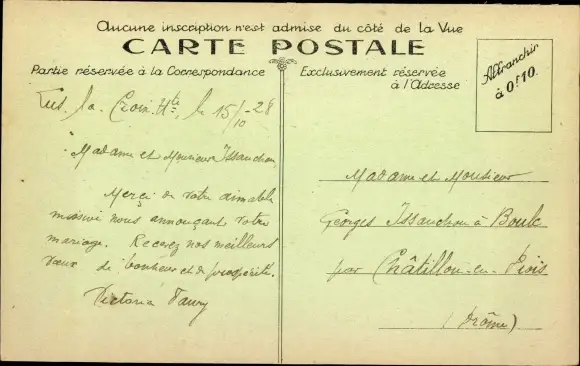 Aucune inscription n'est admise du côté de la Vue
CARTE POSTALE
Partie réservée à la Correspondance
Exclusivement réservée
à l'Adresse
Affranchir
à 0f10.
Lus. la. Croix. Hte, le 15/10 - 28
Madame et Monsieur Issauchou
Merci de votre aimable
missive nous annonçant votre
mariage. Recevez nos meilleurs
vœux de bonheur et de prospérité.
Victoria Faury
Madame et Monsieur
Georges Issauchou à Boulc
par Châtillon-en-Diois
(Drôme)